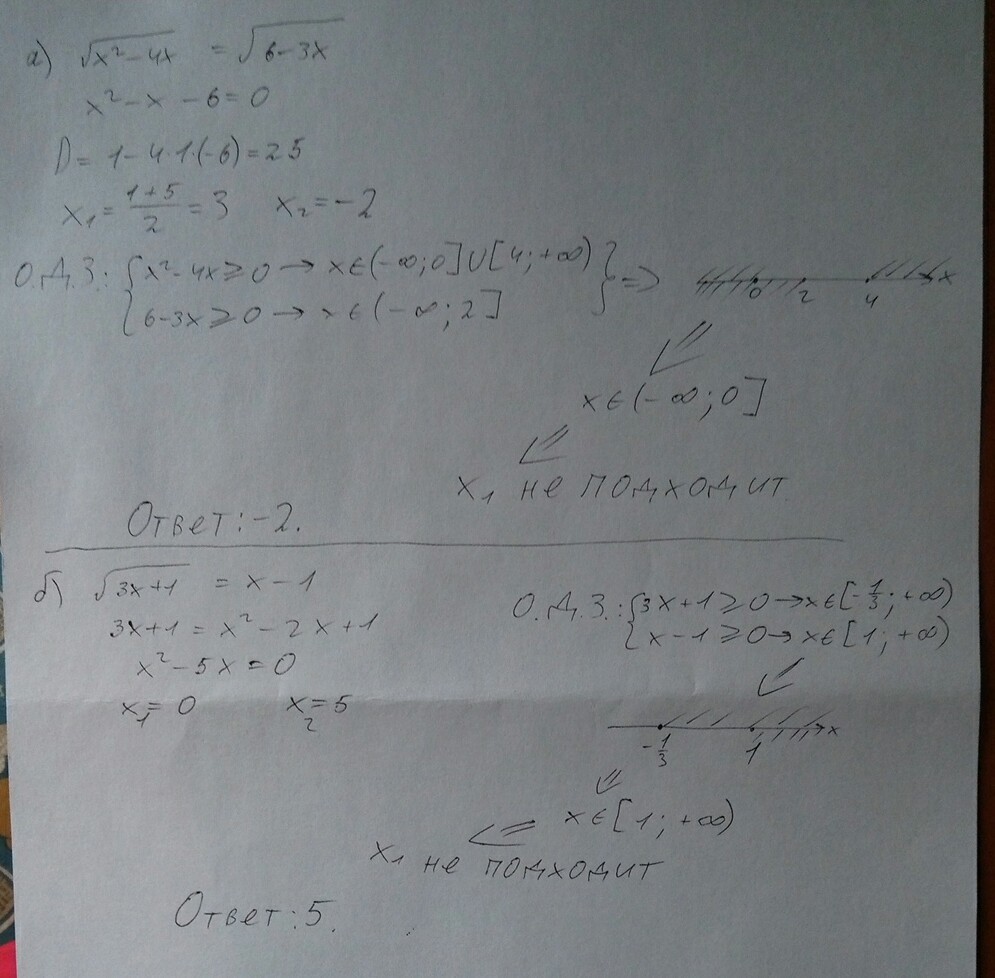 а) √x²-4x = √6-3x
x²-x-6=0
D=1-4·1·(-6)=25
x₁=(1+5)/2=3 x₂=-2
О.Д.З.: {x²-4x≥0→x∈(-∞;0]∪[4;+∞)
{6-3x≥0→x∈(-∞;2] }=>
0 2 4 x
x∈(-∞;0]
x₁ не подходит
Ответ:-2.
б) √3x+1 = x-1
3x+1=x²-2x+1
x²-5x=0
x₁=0 x₂=5
О.Д.З.:{3x+1≥0→x∈[-1/3;+∞)
{x-1≥0→x∈[1;+∞)
-1/3 1 x
x∈[1;+∞)
x₁ не подходит
Ответ:5.